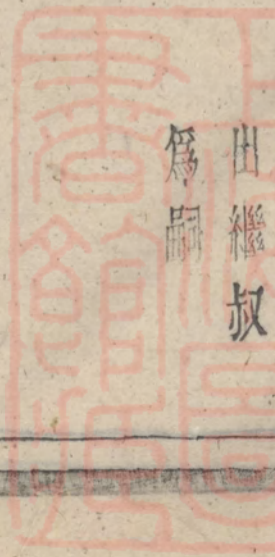 出繼叔
爲嗣